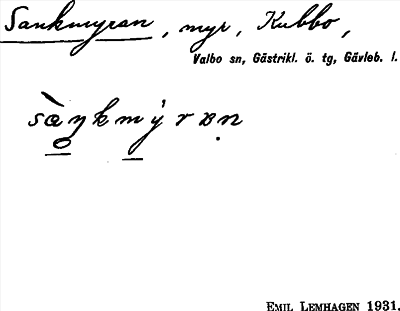 Sankmyran, myr, Kubbo,
Valbo sn, Gästrikl. ö. tg, Gävleb. l.
sàŋkmýrɐṇ
EMIL LEMHAGEN 1931.